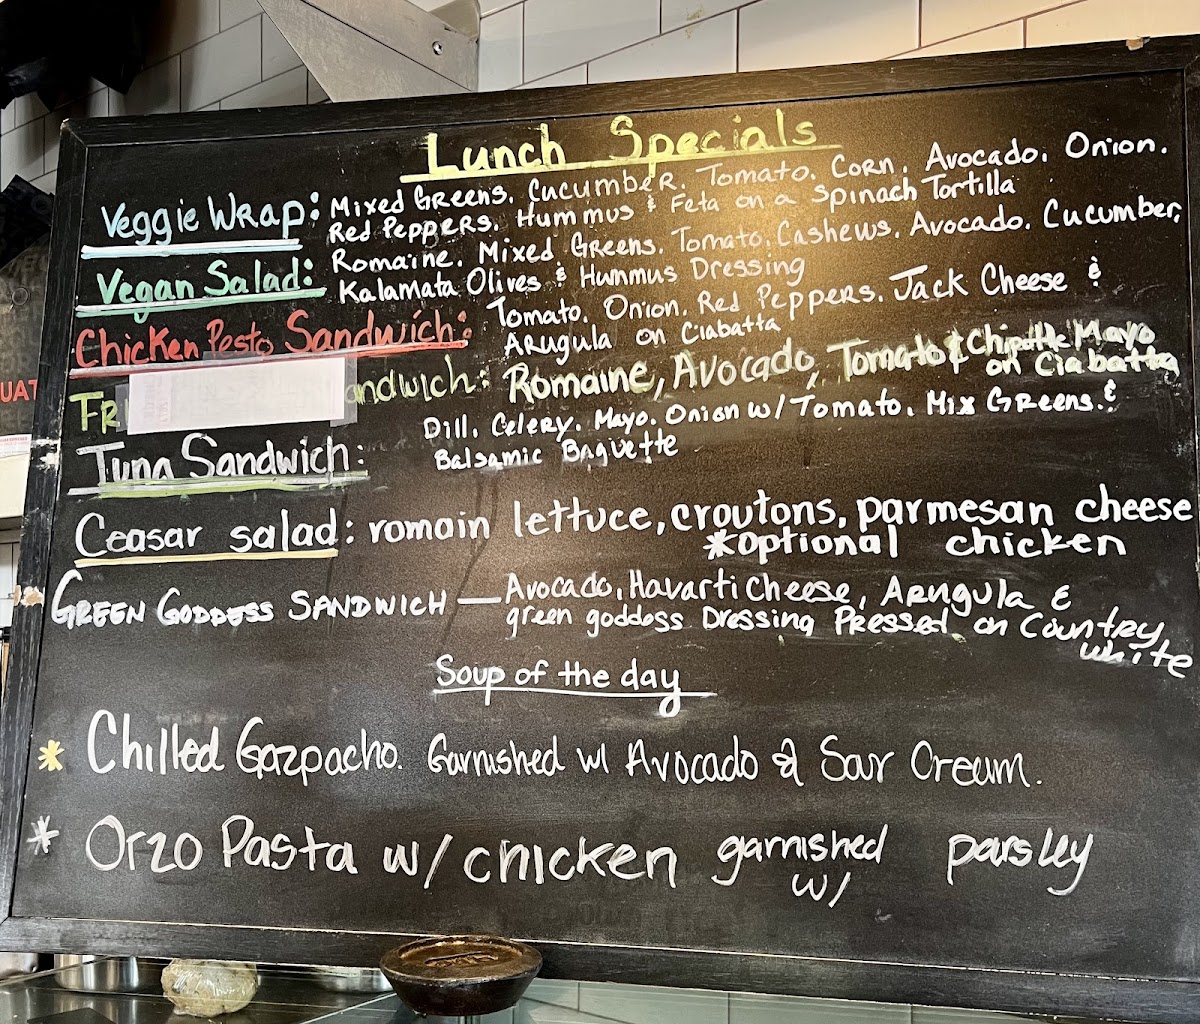 Lunch Specials
Veggie Wrap: Mixed Greens, Cucumber, Tomato, Corn, Avocado, Onion,
Red Peppers, Hummus & Feta on a Spinach Tortilla
Vegan Salad: Romaine, Mixed Greens, Tomato, Cashews, Avocado, Cucumber,
Kalamata Olives & Hummus Dressing
Chicken Pesto Sandwich: Tomato, Onion, Red Peppers, Jack Cheese &
Arugula on Ciabatta
FR andwich: Romaine, Avocado, Tomato & Chipotle Mayo
on Ciabatta
Tuna Sandwich: Dill, Celery, Mayo, Onion w/ Tomato, Mix Greens &
Balsamic Baguette
Ceasar salad: romain lettuce, croutons, parmesan cheese
*optional chicken
GREEN GODDESS SANDWICH — Avocado, Havarti Cheese, Arugula &
green goddess Dressing Pressed on Country
white
Soup of the day
* Chilled Gazpacho. Garnished w/ Avocado & Sour Cream.
* Orzo Pasta w/ chicken garnished parsley
w/
UAT